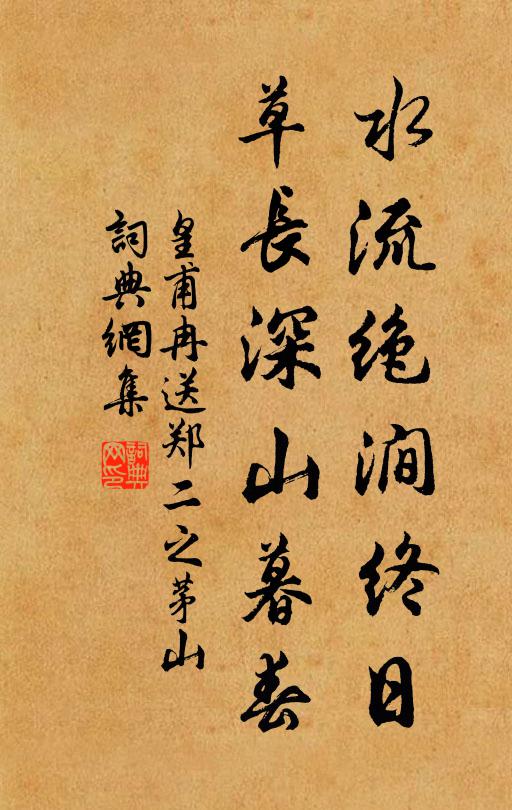 水流绝涧终日
草長深山暮春
皇甫冉送郑二之茅山
詞典網集
詞典网印